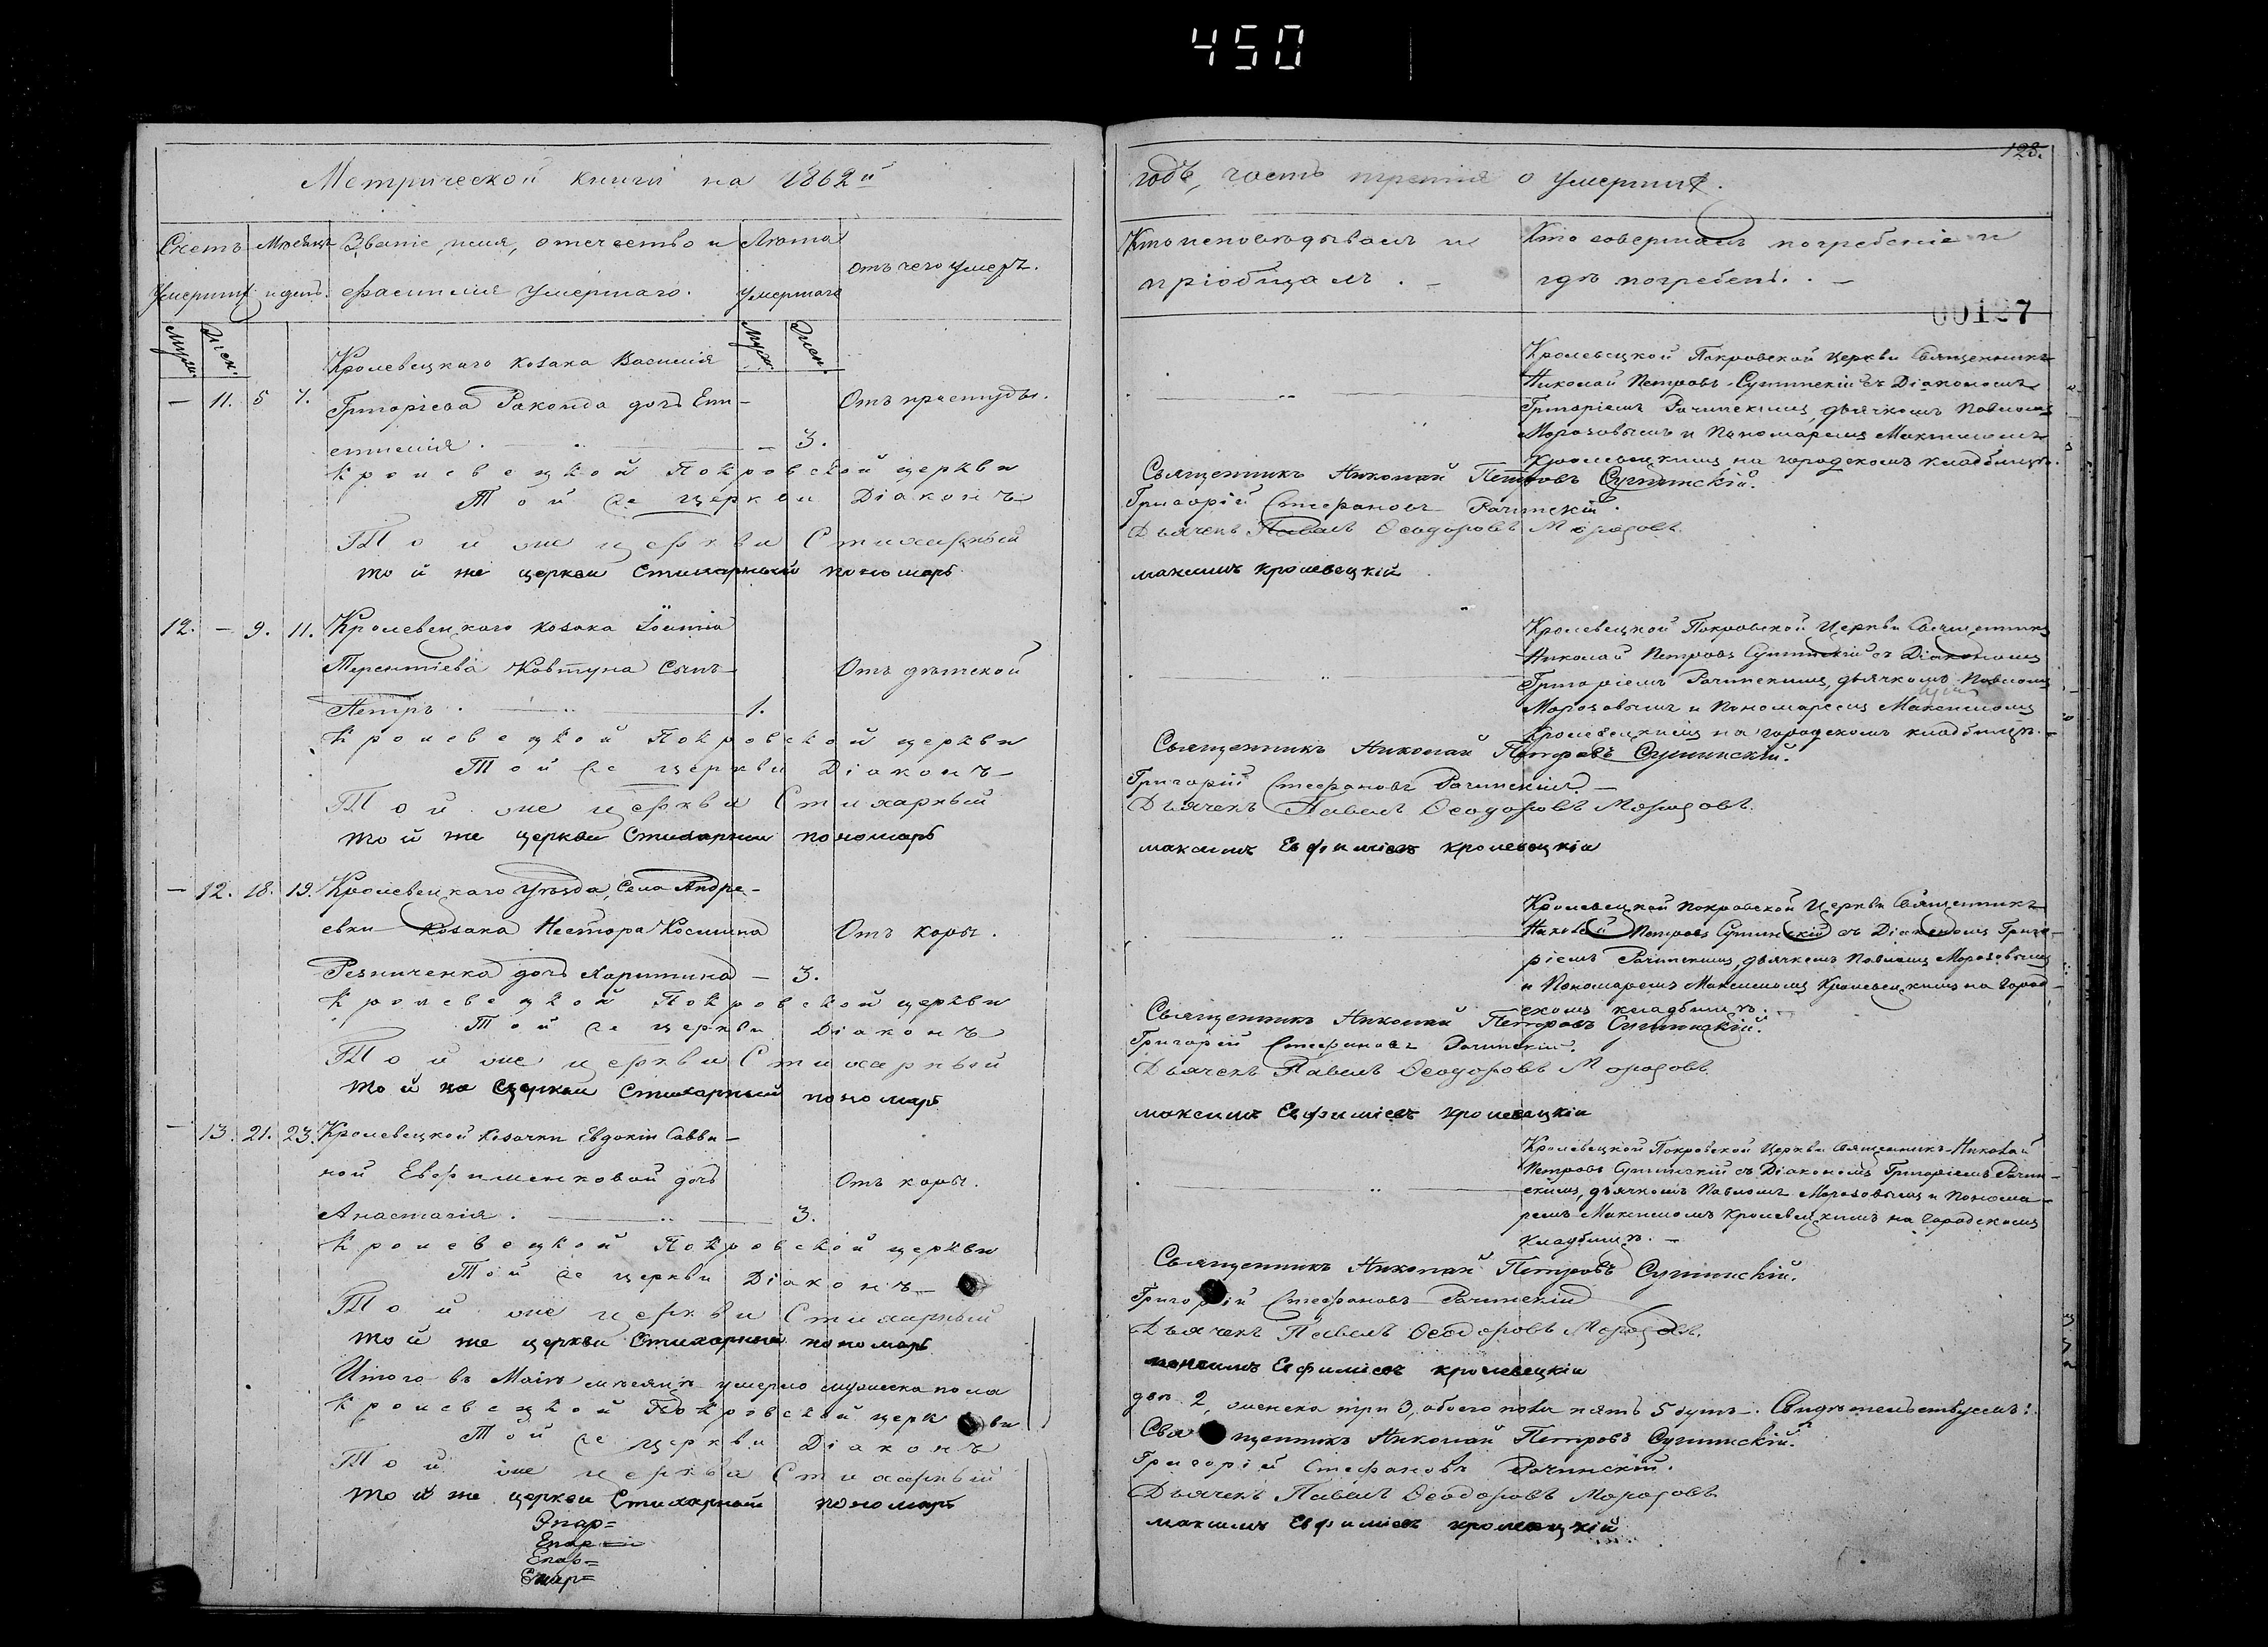 450
Метрической книги на 1862й
Счетъ
Умершихъ
Мѣсяцъ
и день.
Званіе, имя, отечество и
фамилия умершаго.
Лѣта
умершаго
отъ чего умеръ.
Муж.
Жен.
Муж.
Жен.
— 11. 5 7.
Кролевецкаго козака Василія
Григоріева Раконда дочь Епи-
стимія. — 3.
Отъ простуды.
Кролевецкой Покровской церкви
Той же церкви Діаконъ
Той же церкви Стихарный
той же церкви Стихарный пономарь
12. — 9. 11. Кролевецкаго козака
Терентіева Ковтуна Сынъ
Петръ. — 1.
Отъ дѣтской
Кролевецкой Покровской церкви
Той же церкви Діаконъ
Той же церкви Стихарный
той же церкви Стихарный пономарь
— 12. 18. 19. Кролевецкаго Уѣзда, Села Андре-
евки козака Нестора Космина
Резниченка дочь Харитина — 3.
Отъ кори.
Кролевецкой Покровской церкви
Той же церкви Діаконъ
Той же церкви Стихарный
той же церкви Стихарный пономарь
— 13. 21. 23. Кролевецкой козачки Евдокіи Савви-
ной Евфименковой дочь
Анастасія. — 3.
Отъ кори.
Кролевецкой Покровской церкви
Той же церкви Діаконъ
Той же церкви Стихарный
той же церкви Стихарный пономарь
Итого въ Маіѣ мѣсяцѣ умерло мужеска пола
Кролевецкой Покровской церкви
Той же церкви Діаконъ
Той же церкви Стихарный
той же церкви Стихарный пономарь
128.
годъ, часть третія о умершихъ.
Кто исповѣдывалъ и
пріобщалъ. —
Кто совершалъ погребеніе и
гдѣ погребенъ. —
00127
Кролевецкой Покровской церкви Священникъ
Николай Петровъ Сушинскій съ Діакономъ
Григоріемъ Рачинскимъ, дьячкомъ Павломъ
Морозовымъ и Пономаремъ Максимомъ
Кролевецкимъ на городскомъ кладбищѣ.
Священникъ Николай Петровъ Сушинскій.
Григорій Стефановъ Рачинскій.
Дьячекъ Павелъ Феодоровъ Морозовъ.
максимъ кролевецкій
Кролевецкой Покровской Церкви Священникъ
Николай Петровъ Сушинскій съ Діакономъ
Григоріемъ Рачинскимъ, дьячкомъ Павломъ
Морозовымъ и Пономаремъ Максимомъ
Кролевецкимъ на городскомъ кладбищѣ.
Священникъ Николай Петровъ Сушинскій.
Григорій Стефановъ Рачинскій. —
Дьячекъ Павелъ Феодоровъ Морозовъ.
максимъ Евфиміевъ кролевецкій
Кролевецкой Покровской Церкви Священникъ
Николай Петровъ Сушинскій съ Діакономъ Григо-
ріемъ Рачинскимъ, дьячкомъ Павломъ Морозовымъ
и Пономаремъ Максимомъ Кролевецкимъ на город-
скомъ кладбищѣ.
Священникъ Николай Петровъ Сушинскій.
Григорій Стефановъ Рачинскій.
Дьячекъ Павелъ Феодоровъ Морозовъ.
максимъ Евфиміевъ кролевецкій
Кролевецкой Покровской Церкви Священникъ Николай
Петровъ Сушинскій съ Діакономъ Григоріемъ Рачин-
скимъ, дьячкомъ Павломъ Морозовымъ и Понома-
ремъ Максимомъ Кролевецкимъ на городскомъ
кладбищѣ. —
Священникъ Николай Петровъ Сушинскій.
Григорій Стефановъ Рачинскій
Дьячекъ Павелъ Феодоровъ Морозовъ.
максимъ Евфиміевъ кролевецкій
два 2, женска три 3, обоего пола пять 5 душъ. Свидѣтельствуемъ:
Священникъ Николай Петровъ Сушинскій.
Григорій Стефановъ Рачинскій.
Дьячекъ Павелъ Феодоровъ Морозовъ
максимъ Евфиміевъ кролевецкій